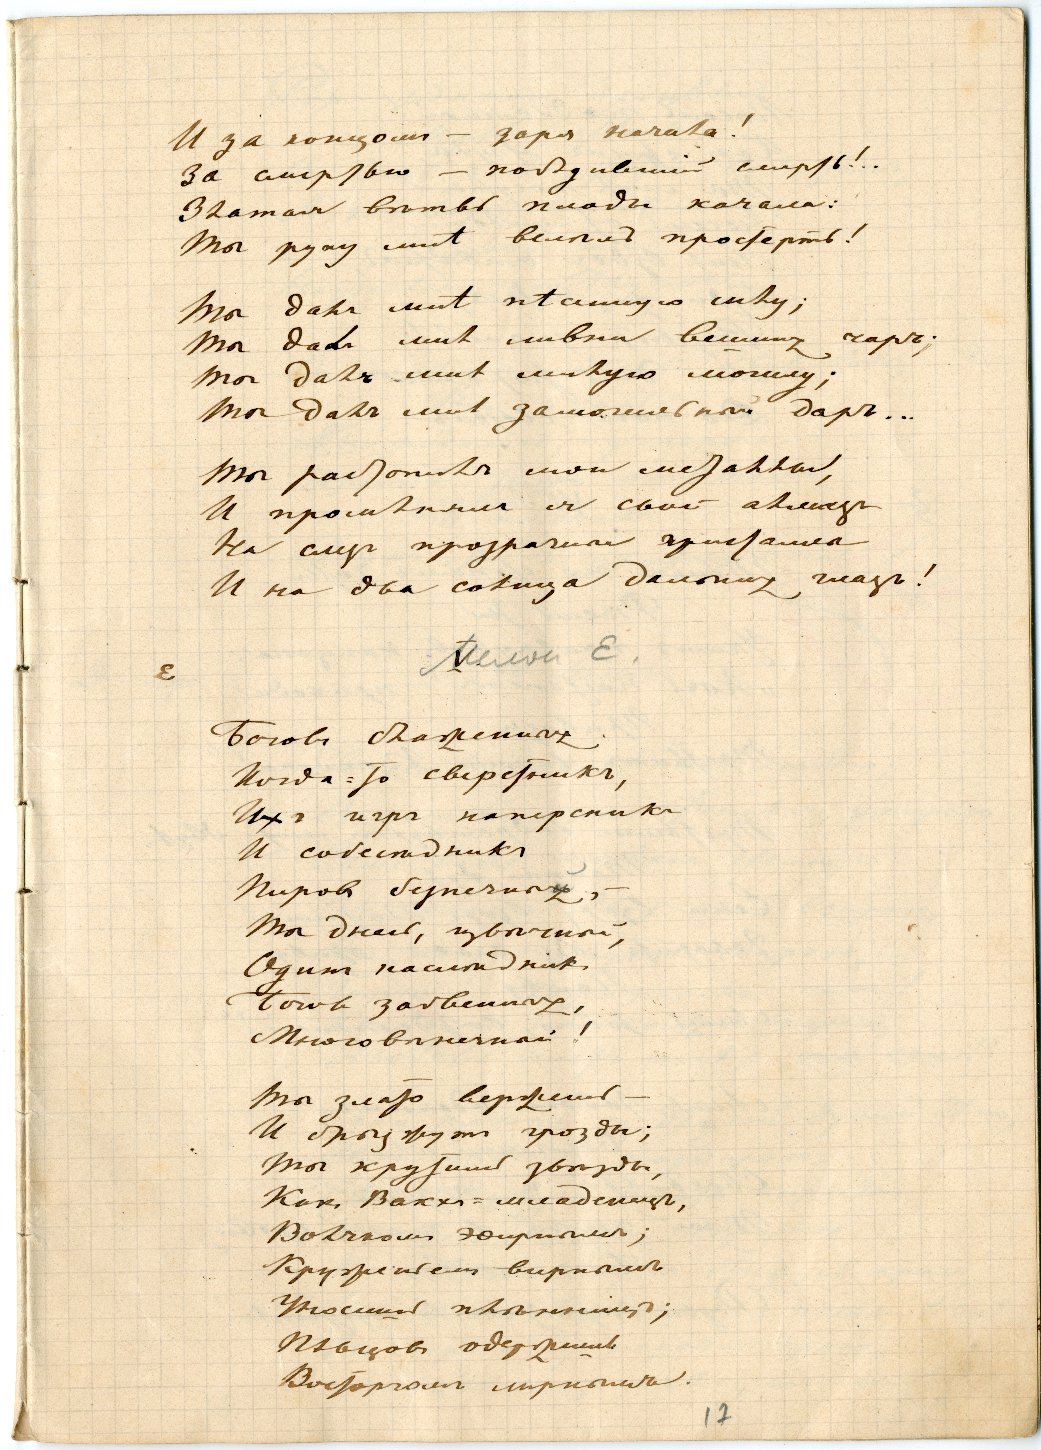 И за концомъ — заря начала!
За смертью — побѣдившій смерть!..
Златая вѣтвь плоды качала:
Ты руку мнѣ велѣлъ простерть!
Ты далъ мнѣ пѣсенную силу;
Ты далъ мнѣ ливни вешнихъ чаръ;
Ты далъ мнѣ милую могилу;
Ты далъ мнѣ замогильный даръ...
Ты растопилъ мои металлы,
И промѣнялъ я свой алмазъ
На слезъ прозрачные кристаллы
И на два солнца дальнихъ глазъ!
Е
Мелон Е.
Боговъ блаженныхъ
Когда-то сверстникъ,
Ихъ игръ наперсникъ
И собесѣдникъ
Пировъ безпечныхъ, —
Ты днесь, извѣчный,
Одинъ наслѣдникъ
Боговъ забвенныхъ,
Многовѣнечный!
Ты злато вержешь —
И брызжутъ грозды;
Ты крутишь звѣзды,
Какъ Вакхъ-младенецъ,
Волчкомъ эѳирнымъ;
Кружитель вирнымъ
Уносишь плѣнницъ;
Пловцовъ одержишь
Восторгомъ мирнымъ.
17